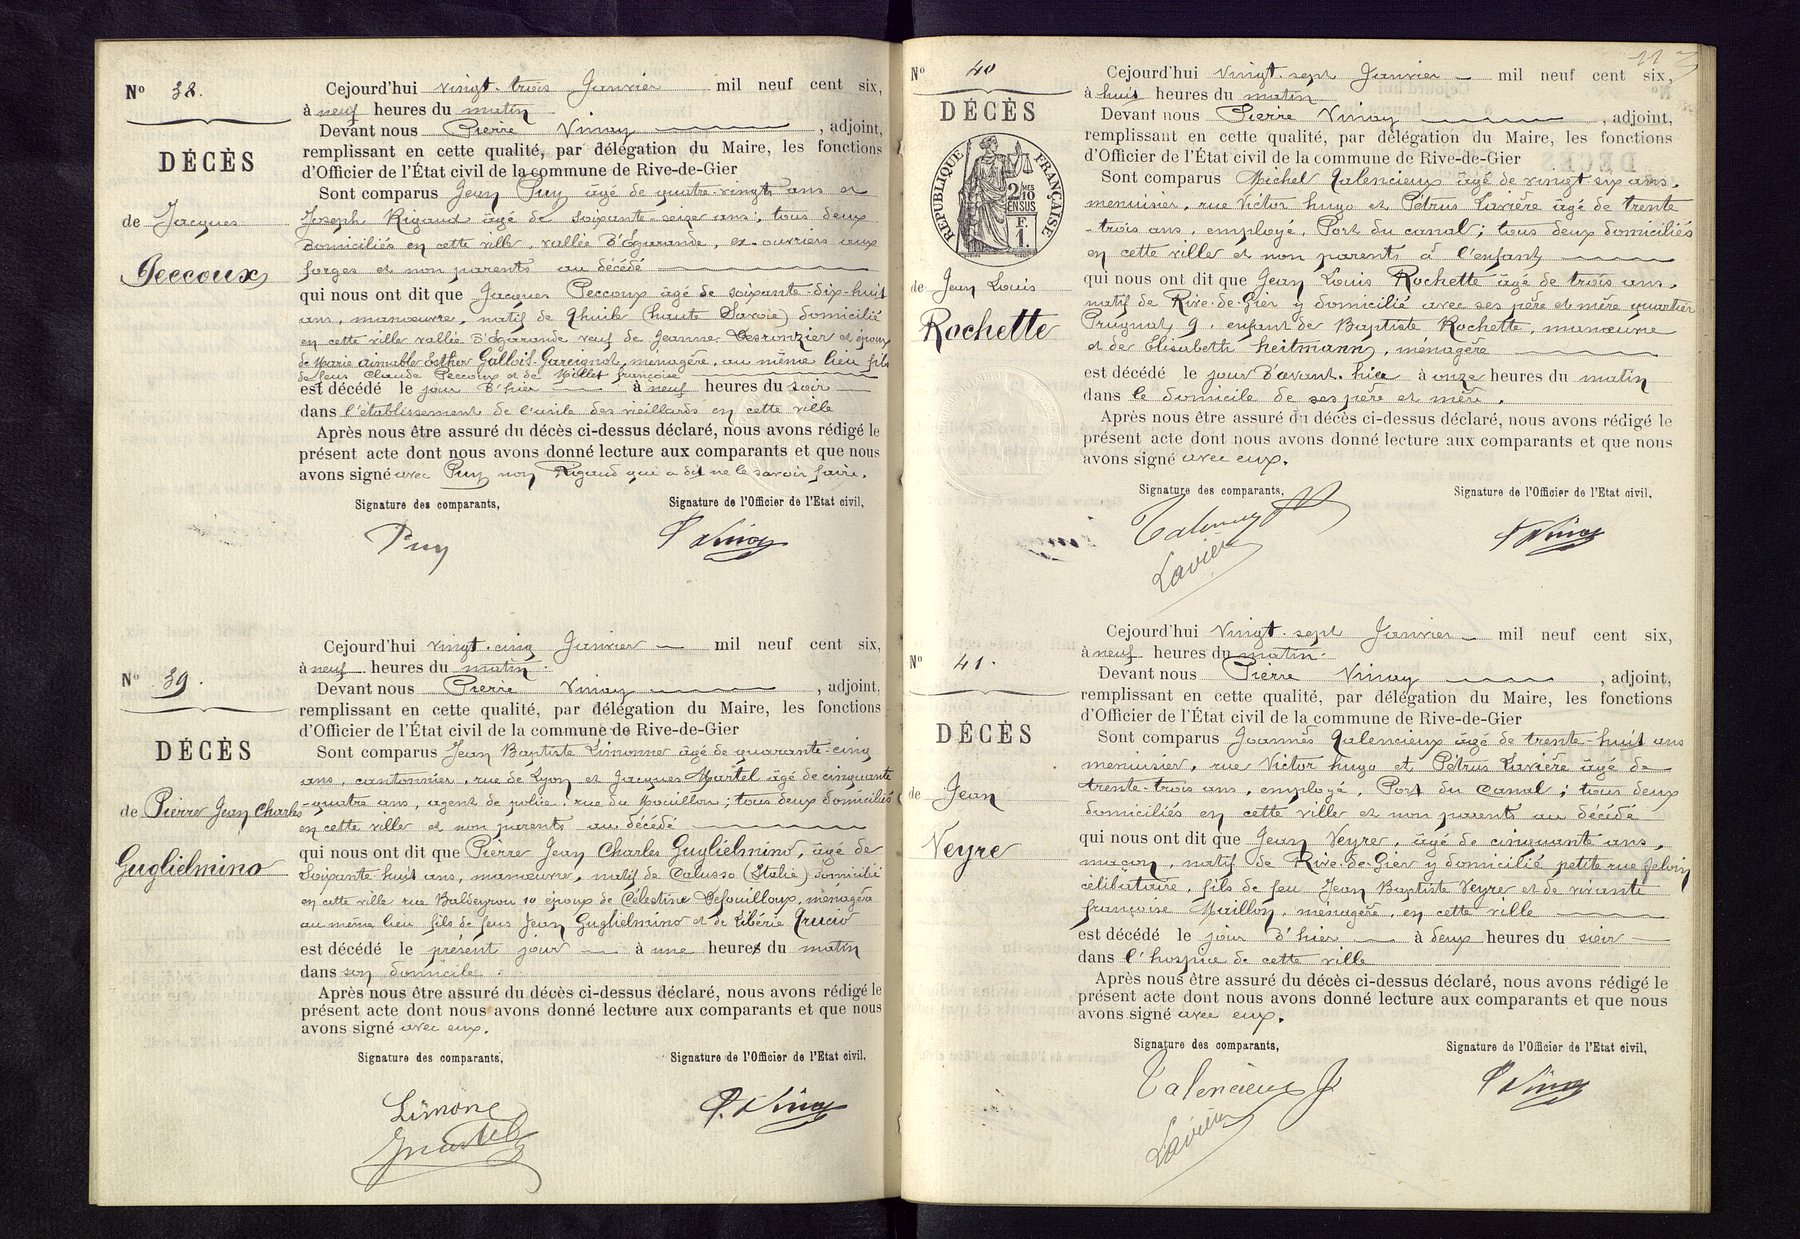 Nº 38.
DÉCÈS
de Jacques
Peccoux
Cejourd'hui vingt-trois Janvier mil neuf cent six,
à neuf heures du matin
Devant nous Pierre Vinay, adjoint,
remplissant en cette qualité, par délégation du Maire, les fonctions
d'Officier de l'État civil de la commune de Rive-de-Gier
Sont comparus Jean Puy âgé de quatre-vingts ans et
Joseph Rigaud âgé de soixante-seize ans, tous deux
domiciliés en cette ville, vallée d'Egarande, ex-ouvriers aux
forges et non parents au décédé
qui nous ont dit que Jacques Peccoux âgé de soixante-dix-huit
ans, manœuvre, natif de (haute Savoie) domicilié
en cette ville vallée d'Egarande veuf de Jeanne Desronzier et époux
de Marie Aimable Esther Gallois-Gareignol, ménagère, au même lieu fils
de feus Claude Peccoux et de Millet françoise
est décédé le jour d'hier à neuf heures du soir
dans l'établissement de l'asile des vieillards en cette ville
Après nous être assuré du décès ci-dessus déclaré, nous avons rédigé le
présent acte dont nous avons donné lecture aux comparants et que nous
avons signé avec Puy non Rigaud qui a dit ne le savoir faire.
Signature des comparants, Signature de l'Officier de l'Etat civil,
Puy P Vinay
Nº 39.
DÉCÈS
de Pierre Jean Charles
Guglielmino
Cejourd'hui vingt-cinq Janvier mil neuf cent six,
à neuf heures du matin.
Devant nous Pierre Vinay, adjoint,
remplissant en cette qualité, par délégation du Maire, les fonctions
d'Officier de l'État civil de la commune de Rive-de-Gier
Sont comparus Jean Baptiste Limonne âgé de quarante-cinq
ans, cantonnier, rue de Lyon et Jacques Martel âgé de cinquante
-quatre ans, agent de police, rue du Mouillon; tous deux domiciliés
en cette ville et non parents au décédé
qui nous ont dit que Pierre Jean Charles Guglielmino, âgé de
soixante huit ans, manœuvre, natif de Calusso (Italie) domicilié
en cette ville rue Baldeyrou 10 époux de Célestine Defouilloux, ménagère
au même lieu, fils de feus Jean Guglielmino et de Libérie
est décédé le présent jour à une heures du matin
dans son domicile.
Après nous être assuré du décès ci-dessus déclaré, nous avons rédigé le
présent acte dont nous avons donné lecture aux comparants et que nous
avons signé avec eux.
Signature des comparants, Signature de l'Officier de l'Etat civil,
Limone P. Vinay
Jmartel
Nº 40
DÉCÈS
RÉPUBLIQUE FRANÇAISE
2/10 MES EN SUS
F. 1.
de Jean Louis
Rochette
Cejourd'hui vingt-sept Janvier mil neuf cent six,
à huit heures du matin
Devant nous Pierre Vinay, adjoint,
remplissant en cette qualité, par délégation du Maire, les fonctions
d'Officier de l'État civil de la commune de Rive-de-Gier
Sont comparus Michel Valencieux âgé de vingt six ans,
menuisier, rue Victor hugo et Pétrus Lavière âgé de trente
-trois ans, employé, Port du canal; tous deux domiciliés
en cette ville et non parents à l'enfant
qui nous ont dit que Jean Louis Rochette âgé de trois ans,
natif de Rive-de-Gier y domicilié avec ses père et mère quartier
Prugnat, 9, enfant de Baptiste Rochette, manœuvre
et de Elisabeth heitmann, ménagère
est décédé le jour d'avant-hier à onze heures du matin
dans le domicile de ses père et mère.
Après nous être assuré du décès ci-dessus déclaré, nous avons rédigé le
présent acte dont nous avons donné lecture aux comparants et que nous
avons signé avec eux.
Signature des comparants, Signature de l'Officier de l'Etat civil,
Valencieux P Vinay
Lavière
Nº 41.
DÉCÈS
de Jean
Veyre
Cejourd'hui vingt-sept Janvier mil neuf cent six,
à neuf heures du matin.
Devant nous Pierre Vinay, adjoint,
remplissant en cette qualité, par délégation du Maire, les fonctions
d'Officier de l'État civil de la commune de Rive-de-Gier
Sont comparus Joannès Valencieux âgé de trente-huit ans
menuisier, rue Victor hugo et Pétrus Lavière âgé de
trente-trois ans, employé, Port du Canal; tous deux
domiciliés en cette ville et non parents au décédé
qui nous ont dit que Jean Veyre, âgé de cinquante ans,
maçon, natif de Rive-de-Gier y domicilié petite rue Féloin
célibataire, fils de feu Jean Baptiste Veyre et de vivante
françoise Maillon, ménagère, en cette ville
est décédé le jour d'hier à deux heures du soir
dans l'hospice de cette ville
Après nous être assuré du décès ci-dessus déclaré, nous avons rédigé le
présent acte dont nous avons donné lecture aux comparants et que nous
avons signé avec eux.
Signature des comparants, Signature de l'Officier de l'Etat civil,
Valencieux J P Vinay
Lavière